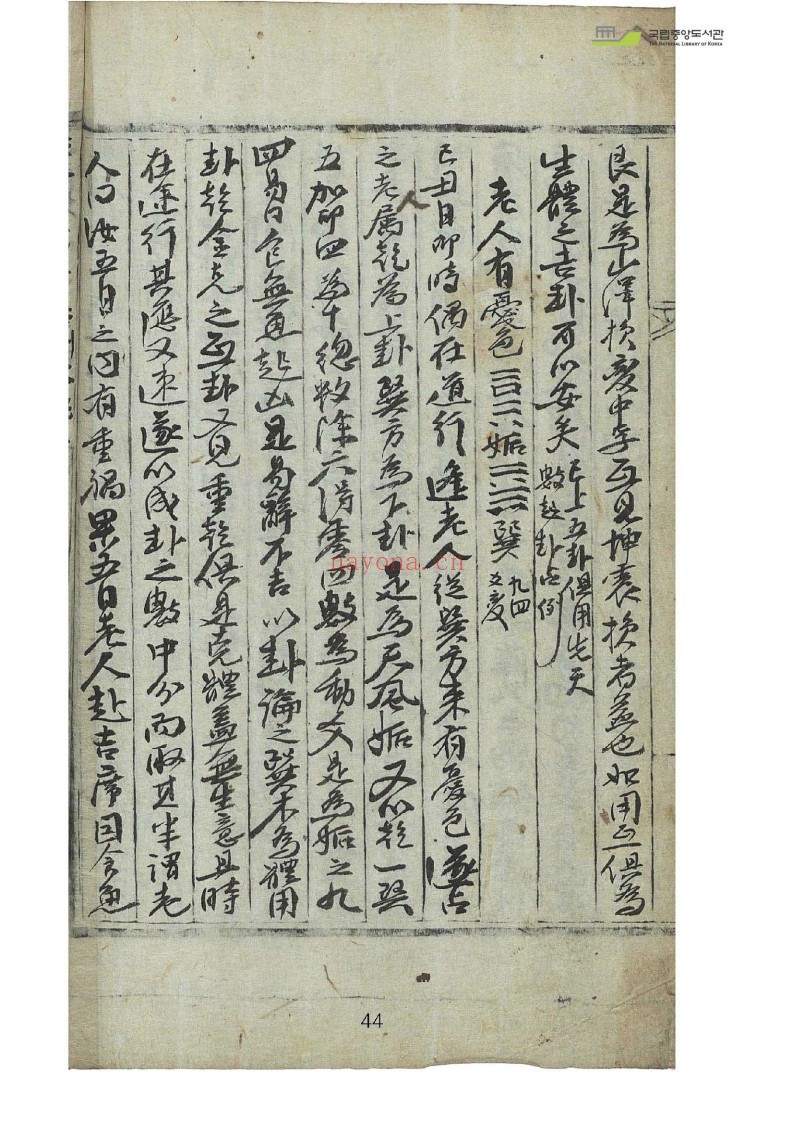 국립중앙도서관
THE NATIONAL LIBRARY OF KOREA
艮是為山澤損變中孚互見坤震損者益也如用互俱為
生體之吉卦可以安矣 已上五卦俱用先天
數起卦占例
老人有憂色 姤 巽 九四
爻變
己丑日卯時偶在道行逢老人從巽方來有憂色遂占
之老人属乾為上卦巽方為下卦是為天風姤又以乾一巽
五加卯四為十總数除六得零四數為動爻是為姤之九
四易曰包無魚起凶是易辭不吉以卦論之巽木為體用
卦乾金克之互卦又見重乾俱是克體盖無生意且時
在途行其應又速遂以成卦之數中分而取其半謂老
人曰汝五日之內有重禍果五日老人赴吉席因食魚
nayona.cn
44